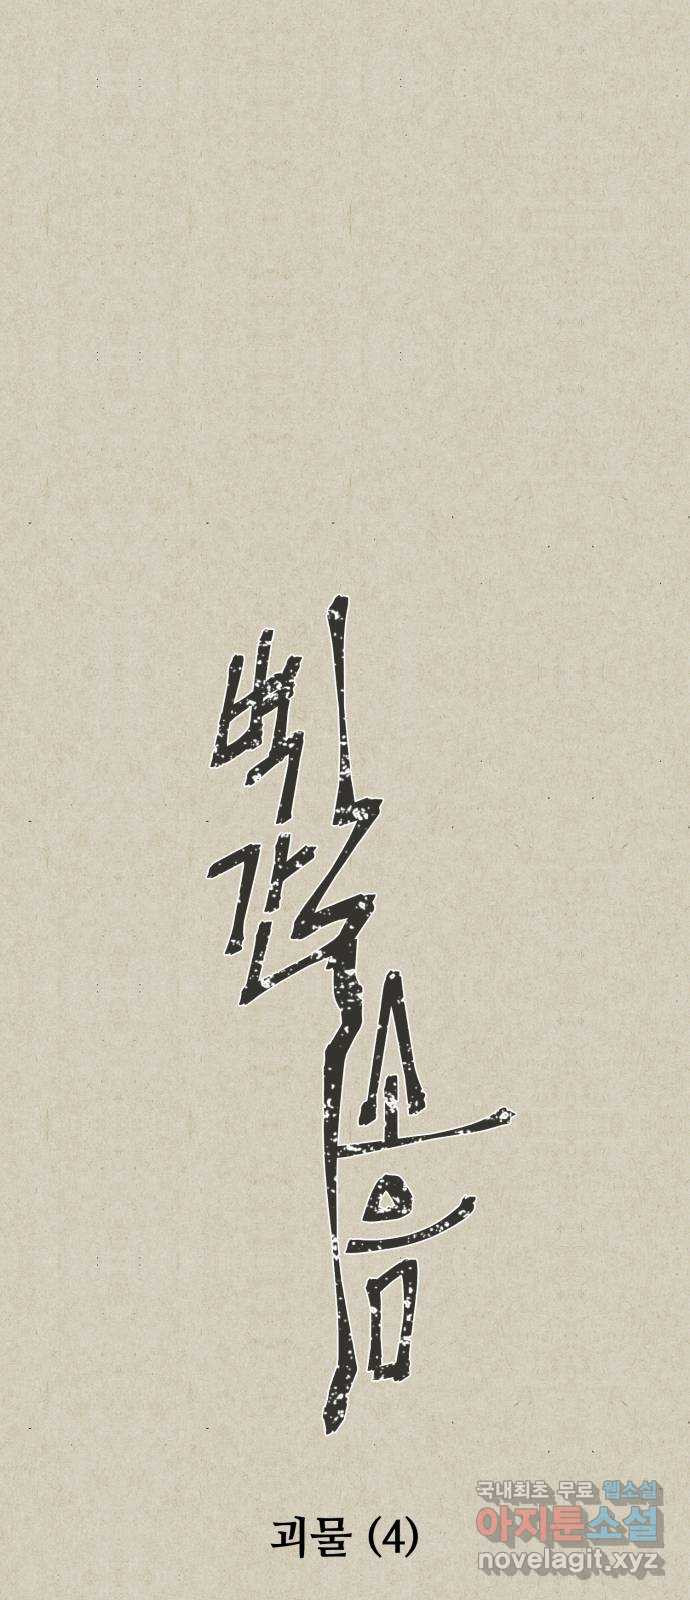 빨간
소음
괴물 (4)
국내최초 무료 웹소설
아지툰소설
novelagit.xyz